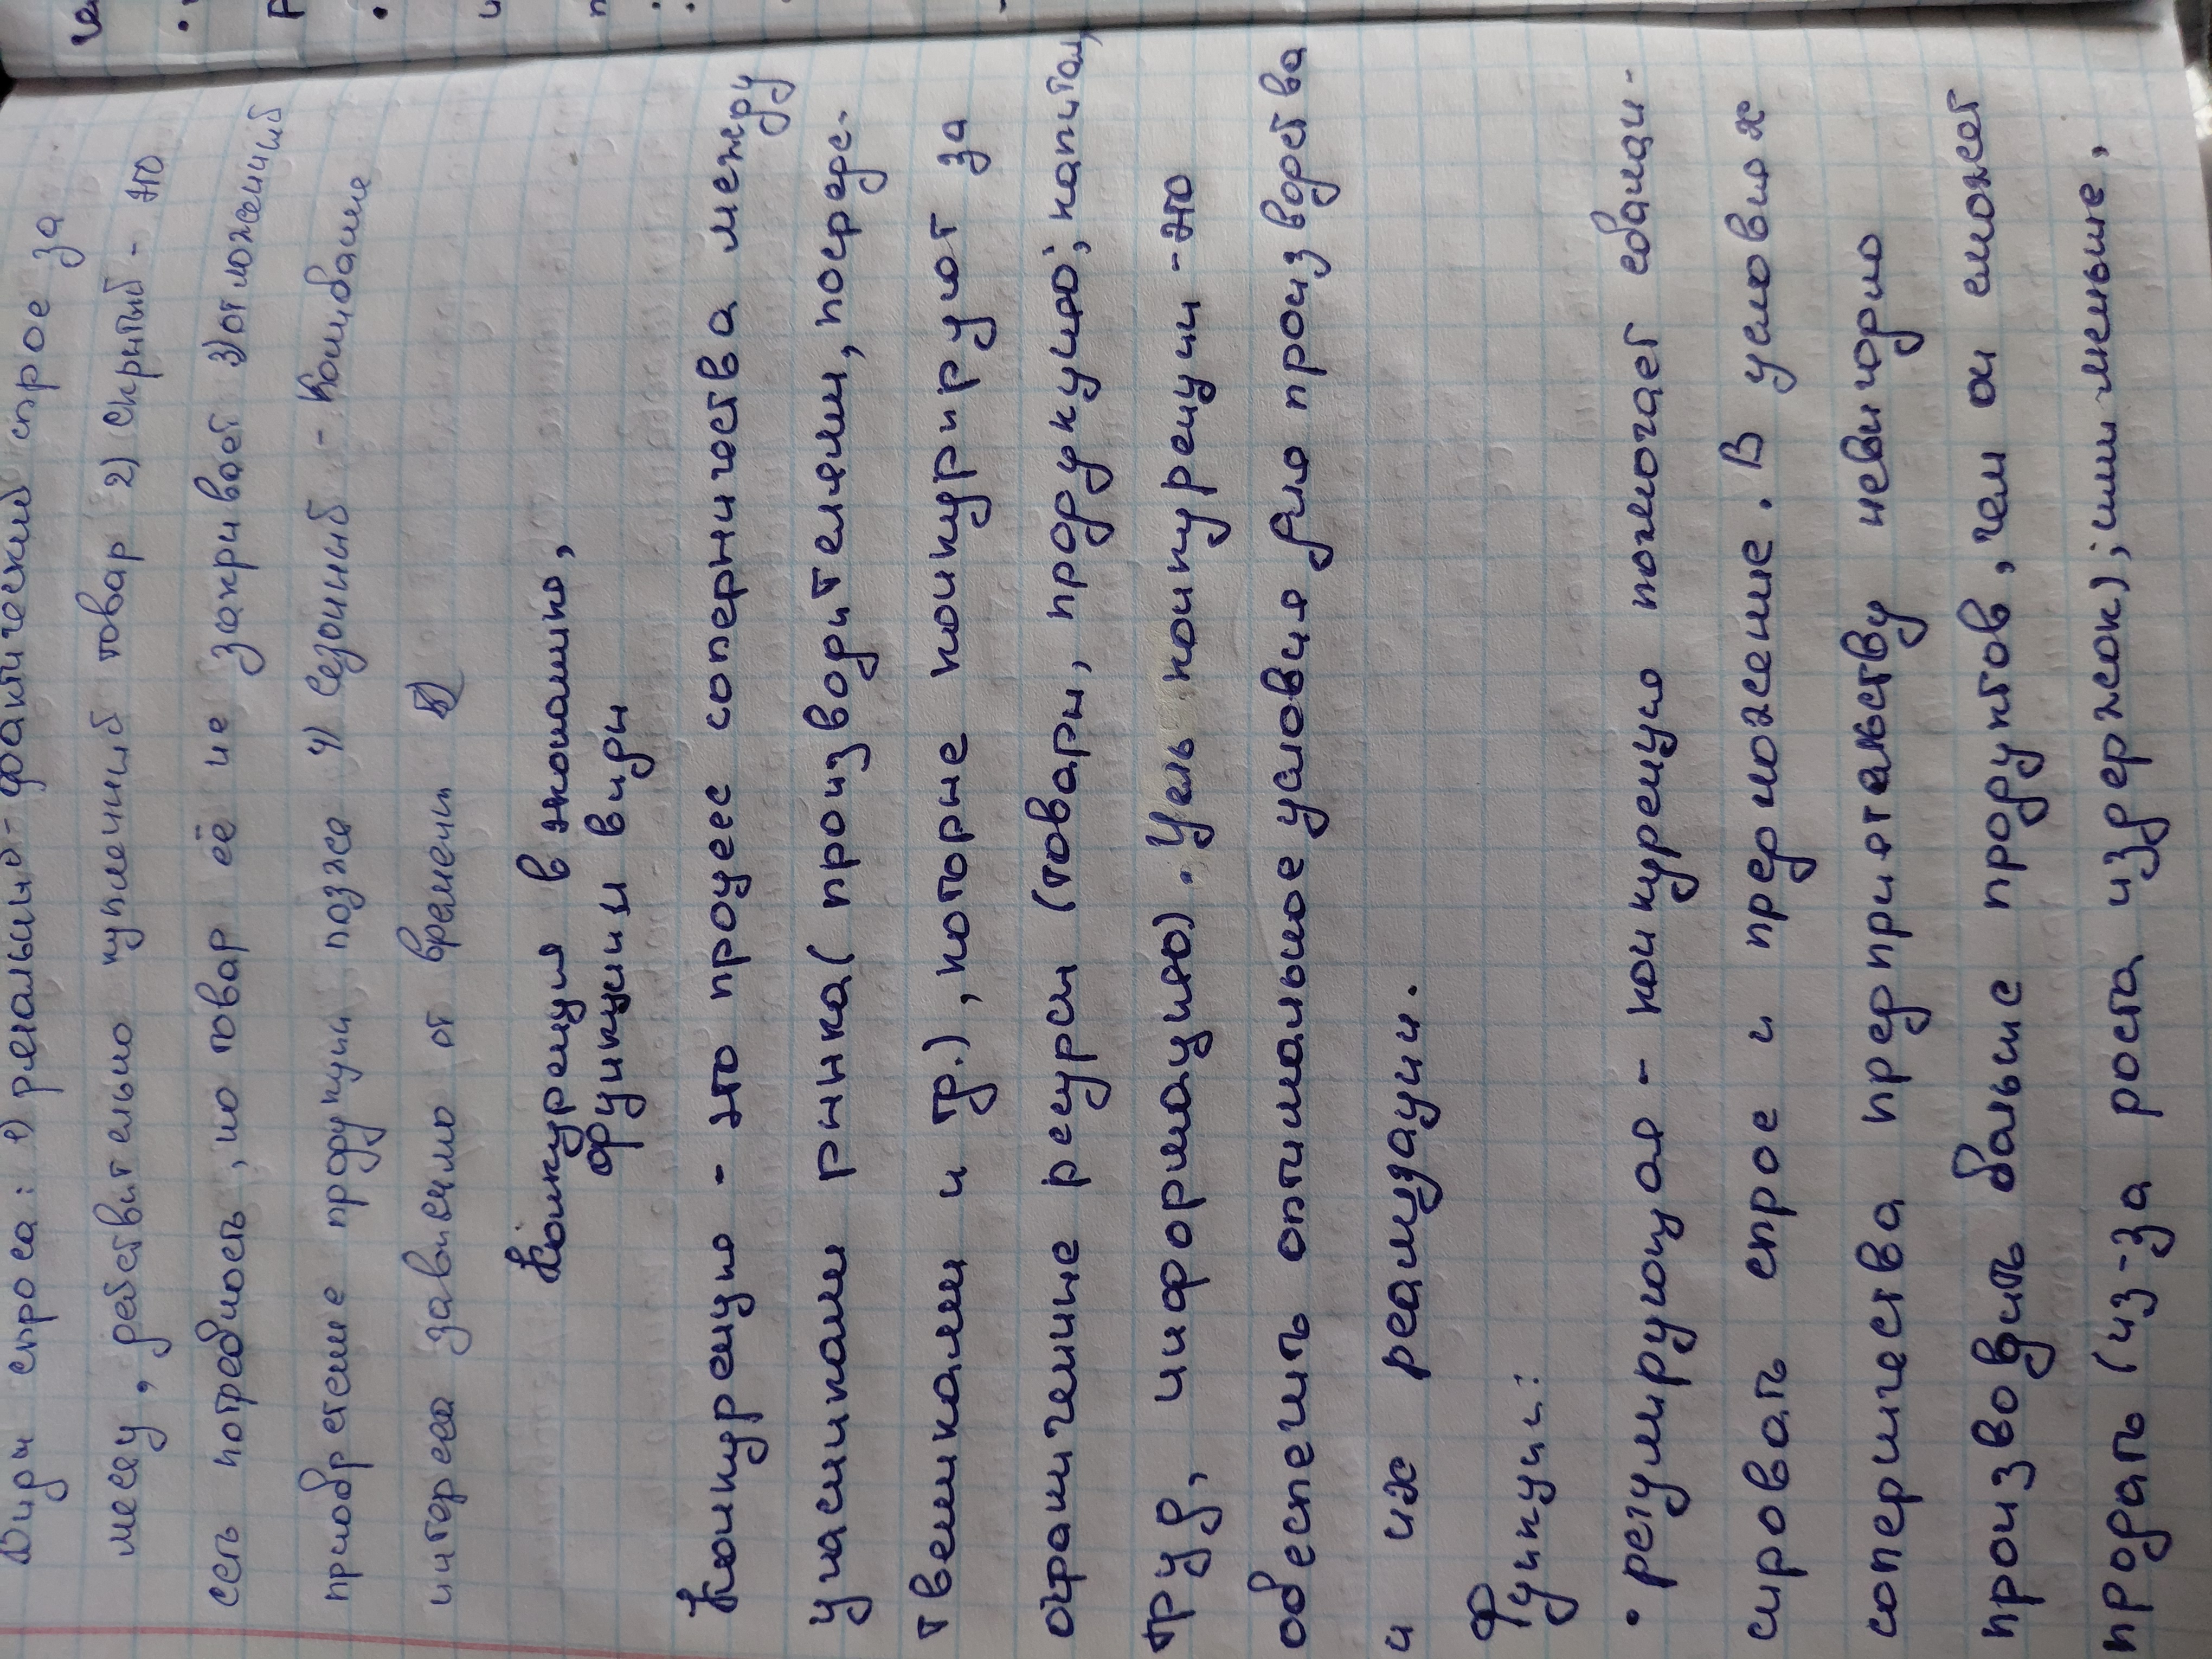 Виды спроса: 1) реальный - фактический спрос за
месяц, действительно купленный товар 2) скрытый - это
есть потребность, но товар её не закрывает 3) отложенный
приобретение продукции позже 4) Сезонный - колебание
интереса зависимо от времени
Конкуренция в экономике,
функции и виды
Конкуренция - это процесс соперничества между
участниками рынка (производителями, посредс-
твенниками и др.), которые конкурируют за
ограниченные ресурсы (товары, продукцию, капитал,
труд, информацию). Цель конкуренции - это
обеспечить оптимальное условия для производства
и их реализации.
Функции:
• регулирующая - конкуренция помогает сбалан-
сировать спрос и предложение. В условиях
соперничества предприятельству невыгодно
производить больше продуктов, чем он сможет
продать (из-за роста издержок), или меньше,